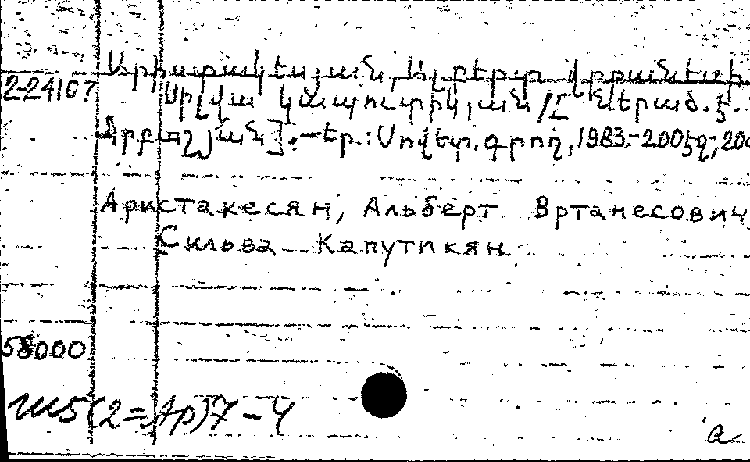 Արիստակեսյան, Ալբերտ Վրթանեսի
2-24167
Սիլվա Կապուտիկյան /Հ Ներած. է.
Ջրբաշյան].-Եր.: Սովետ. գրող, 1983.-200 էջ, 20
Аристакесян, Альберт Вртанесович
Сильва Капутикян
58000
Ш5(2=Ар)7-4
а